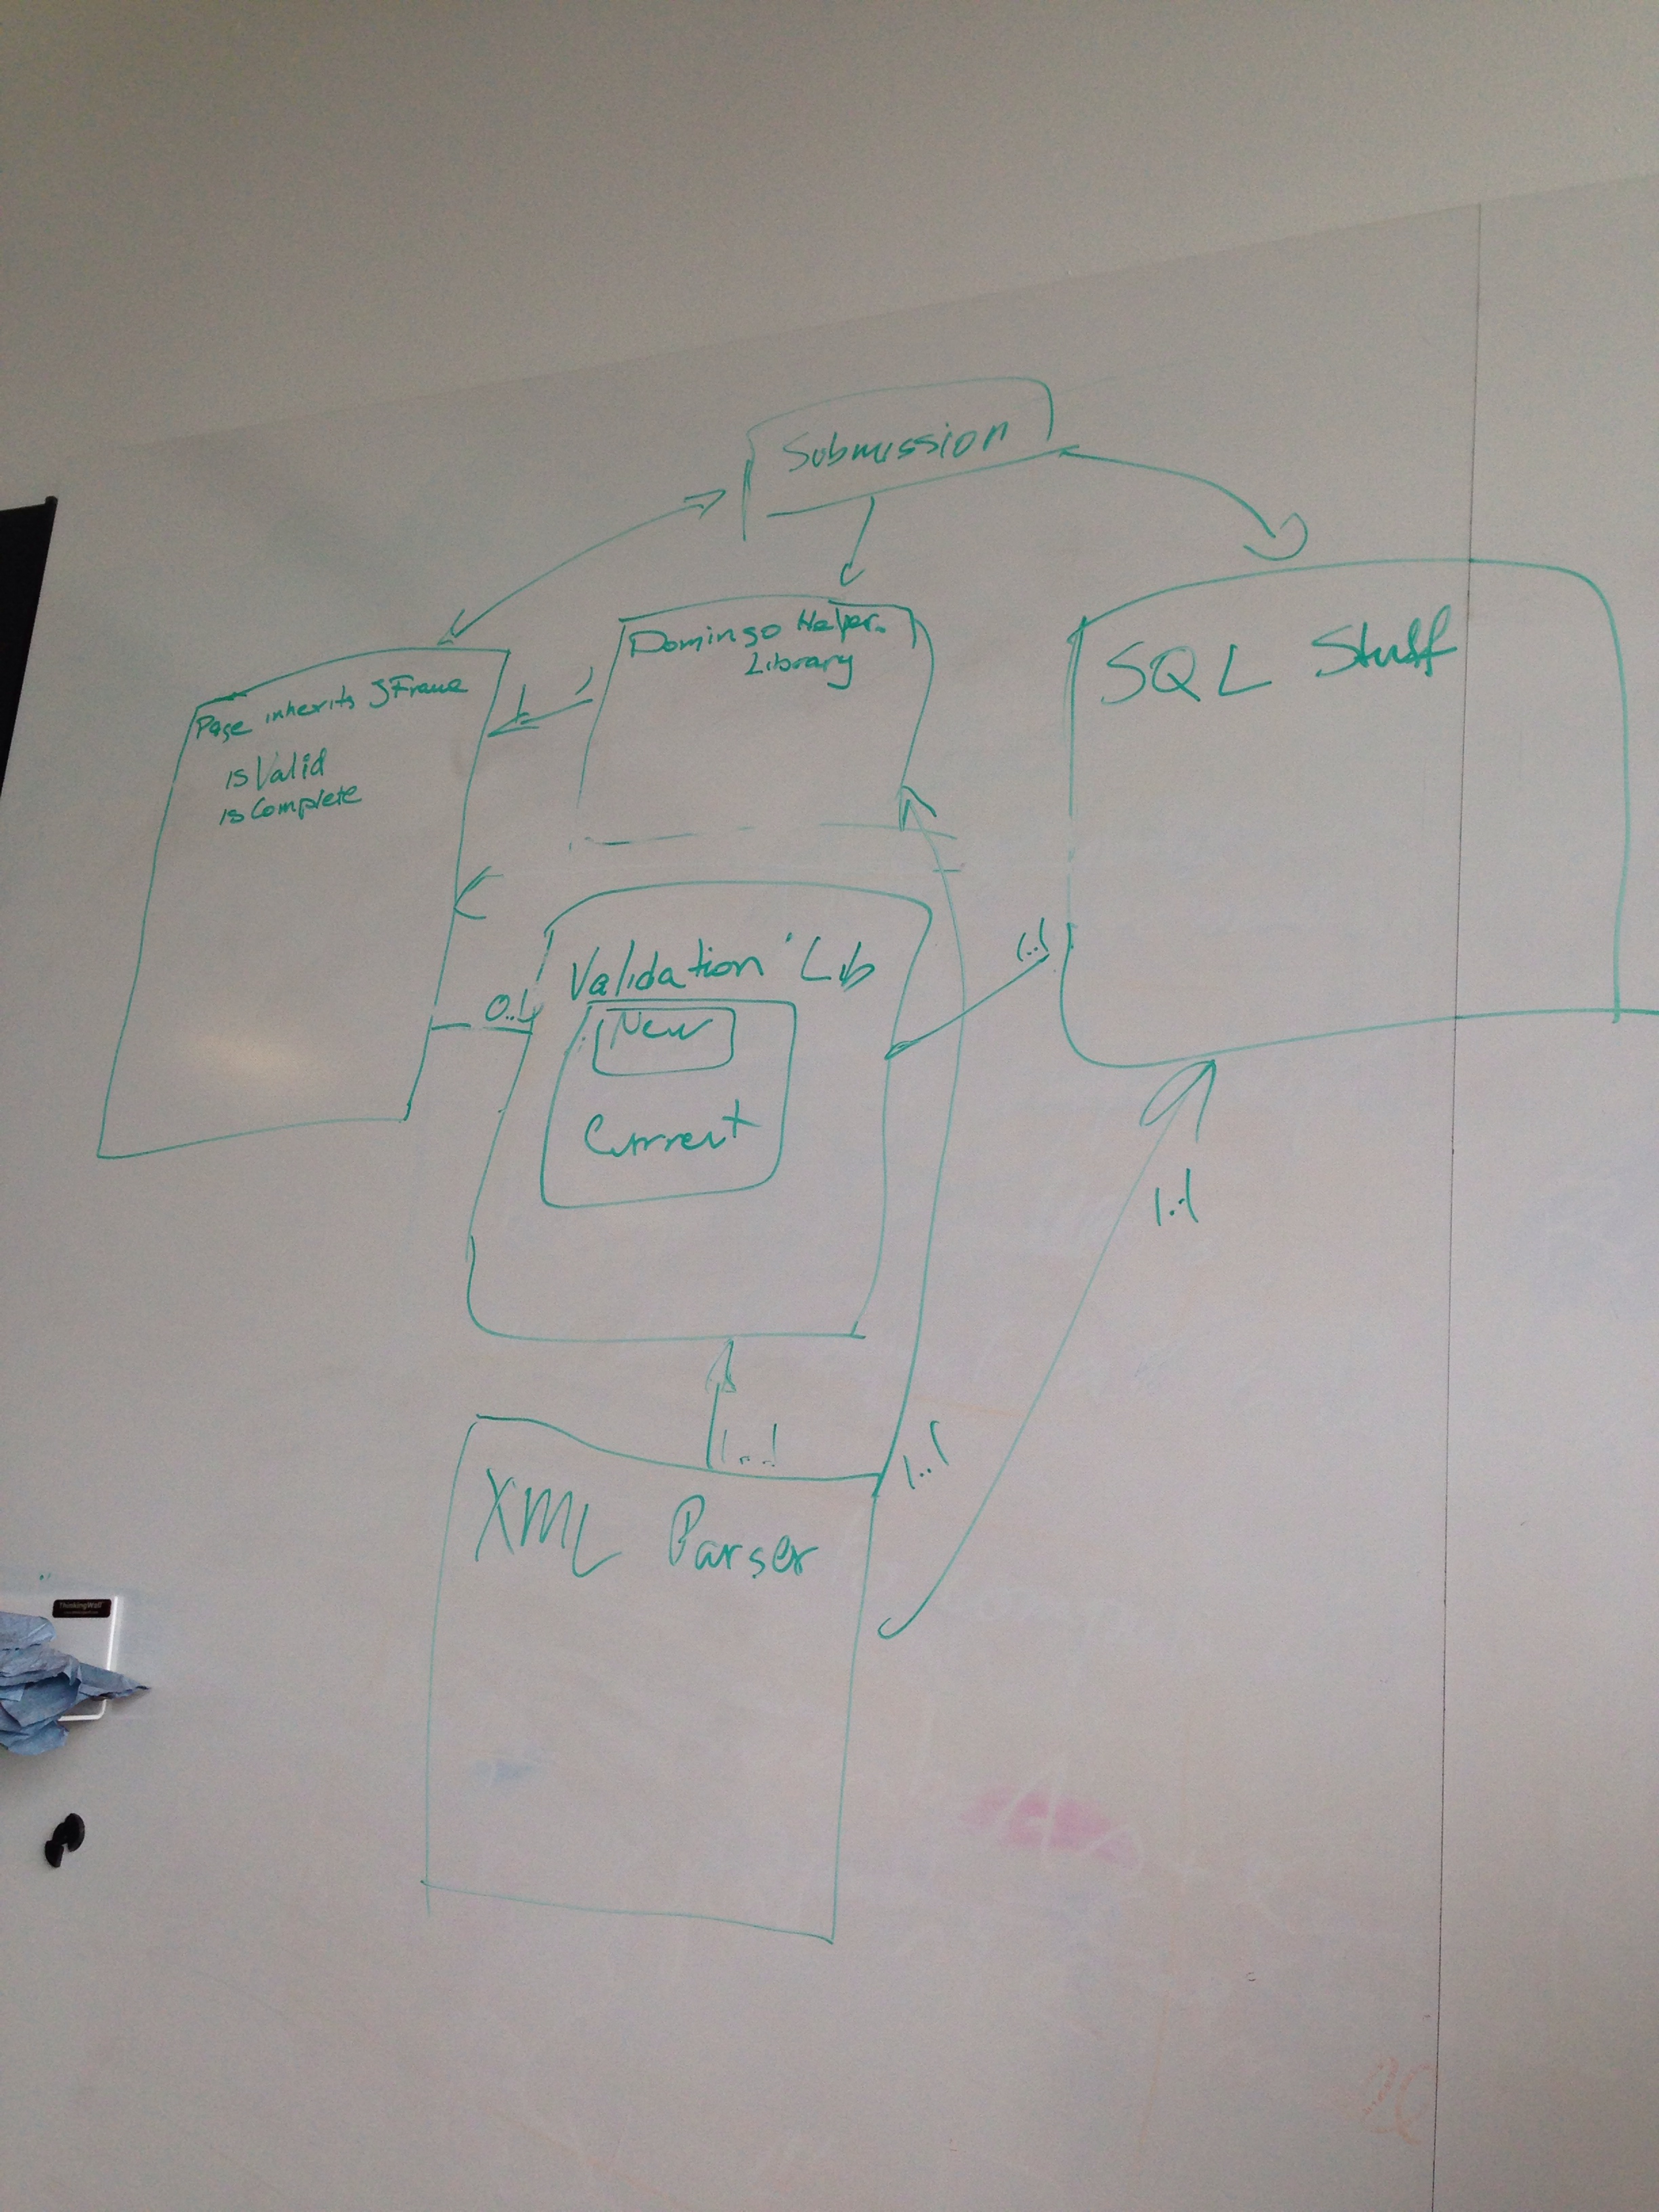 Submission
Domingo Helper
Library
SQL Stuff
Page inherits JFrame
isValid
isComplete
1
Validation Lib
1..1
0..1
New
Current
1..1
1..1
1..1
XML Parser
ThinkingWall